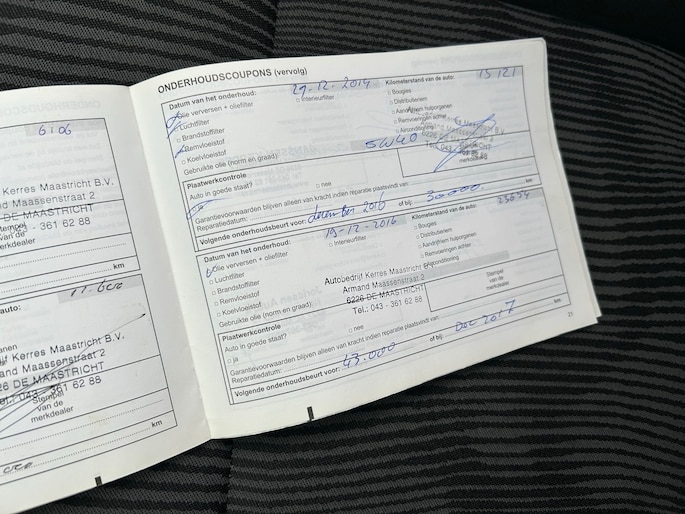 6106
Kerres Maastricht B.V.
nd Maassenstraat 2
DE MAASTRICHT
- 361 62 88
Stempel
van de
merkdealer
km
auto:
anen
Kerres Maastricht B.V.
and Maassenstraat 2
26 DE MAASTRICHT
Tel.: 043 - 361 62 88
Stempel
van de
merkdealer
km
ONDERHOUDSCOUPONS (vervolg)
Datum van het onderhoud: 29-12-2014
Kilometerstand van de auto: 15121
Olie verversen + oliefilter
Interieurfilter
Bougies
Luchtfilter
Distributieriem
Brandstoffilter
Aandrijfriem hulporganen
Remvloeistof
Remvoeringen
Koelvloeistof
Airconditioning
Gebruikte olie (norm en graad): 5W40
Plaatwerkcontrole
merkdealer
Auto in goede staat?
nee
Garantievoorwaarden blijven alleen van kracht indien reparatie plaatsvindt van
Reparatiedatum:
Volgende onderhoudsbeurt voor: december 2016 of bij: 30.000 km
Datum van het onderhoud: 19-12-2016
Kilometerstand van de auto: 23654
Olie verversen + oliefilter
Interieurfilter
Bougies
Luchtfilter
Distributieriem
Brandstoffilter
Aandrijfriem hulporganen
Remvloeistof
Remvoeringen
Koelvloeistof
Airconditioning
Gebruikte olie (norm en graad):
Autobedrijf Kerres Maastricht B.V.
Armand Maassenstraat 2
6226 DE MAASTRICHT
Tel.: 043 - 361 62 88
Stempel
van de
merkdealer
Plaatwerkcontrole
Auto in goede staat?
ja
nee
Garantievoorwaarden blijven alleen van kracht indien reparatie plaatsvindt van
Reparatiedatum:
Volgende onderhoudsbeurt voor: 43.000 of bij: Dec 2017 km
21